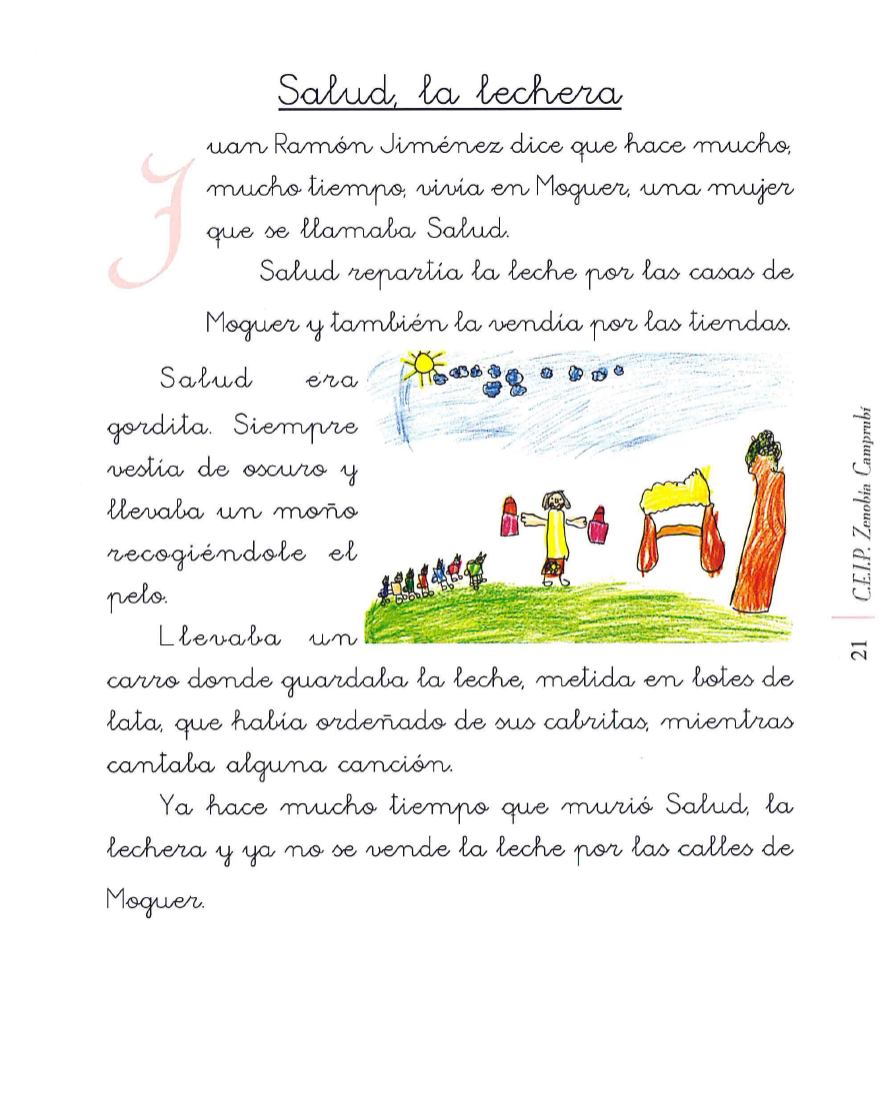 Salud, la lechera
Juan Ramón Jiménez dice que hace mucho,
mucho tiempo, vivía en Moguer, una mujer
que se llamaba Salud.
Salud repartía la leche por las casas de
Moguer y también la vendía por las tiendas.
Salud era
gordita. Siempre
vestía de oscuro y
llevaba un moño
recogiéndole el
pelo.
Llevaba un
carro donde guardaba la leche, metida en botes de
lata, que había ordeñado de sus cabritas, mientras
cantaba alguna canción.
Ya hace mucho tiempo que murió Salud, la
lechera y ya no se vende la leche por las calles de
Moguer.
21 C.E.I.P. Zenobia Camprubí